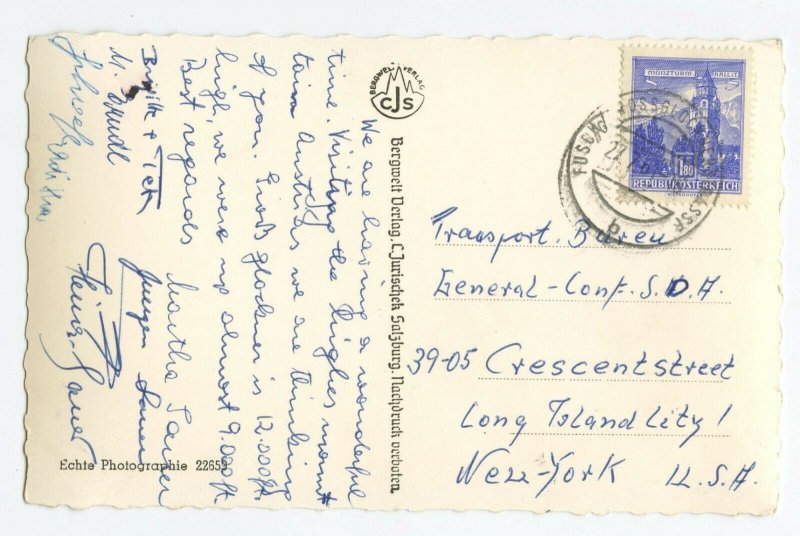 We are having a wonderful
time. Visiting the highes mount
tain Austrias we are thinking
of you. Großglockner is 12.000 ft.
high, we were up almost 9.000 ft.
Best regards Martha Sauer
Brigitte + Jürgen Sauer
Heinz Sauer
BERGWELT VERLAG
CJS
Bergwelt Verlag, C. Jurischek Salzburg. Nachdruck verboten.
Echte Photographie 22653
MÜNZTURM HALL I.T.
1.80
REPUBLIK ÖSTERREICH
FUSCH
b
Transport. Bureu
General-Conf. S.D.A.
39-05 Crescentstreet
Long Island City!
New-York U.S.A.